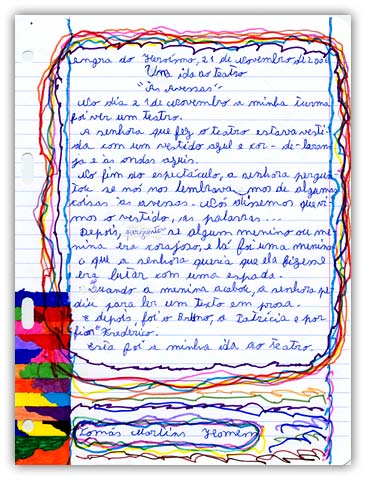 Angra do Heroísmo, 21 de Novembro de 200
Uma ida ao teatro
"Às Avessas"
No dia 21 de Novembro a minha turma
foi ver um teatro.
A senhora que fez o teatro estava vesti-
da com um vestido azul e cor-de-laran-
ja e às ondas azuis.
No fim do espectáculo, a senhora pergun-
tou se nós nos lembrava_mos de algumas
coisas às avessas. Nós dissemos que vi-
mos o vestido, as palavras...
Depois, perguntou se algum menino ou me-
nina era corajoso, e lá foi uma menina
e o que a senhora queria que ela fizesse
era lutar com uma espada.
Quando a menina acabou, a senhora pe-
diu para ler um texto em prosa.
E depois, foi o Bruno, a Patrícia e por
fim o Frederico.
Esta foi a minha ida ao teatro.
Tomás Martins Homem